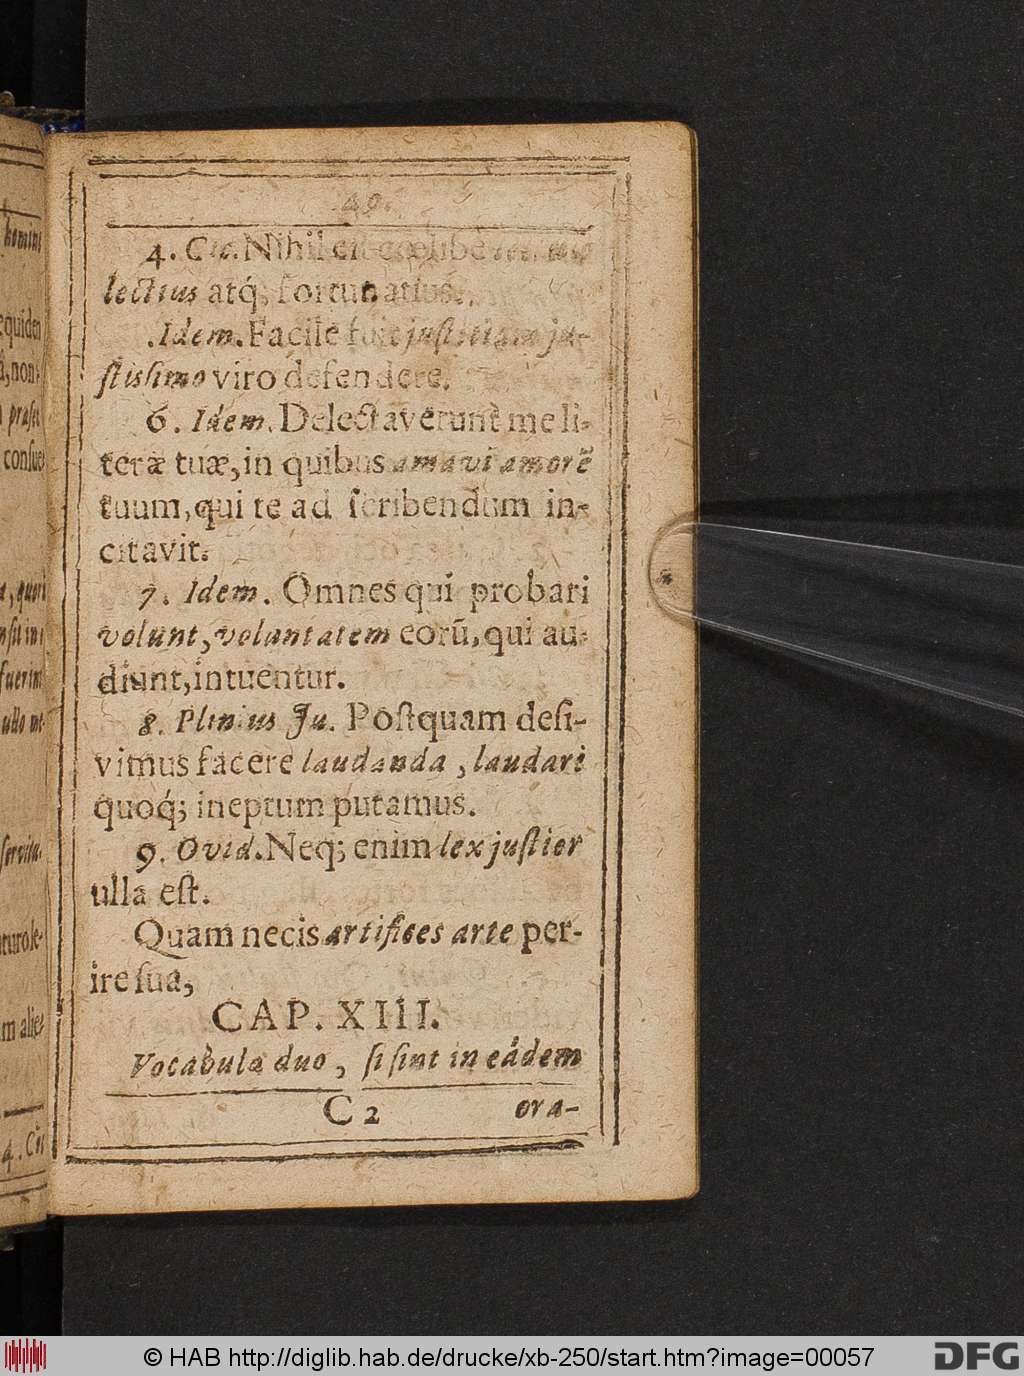 homini
equidem
non-
præse
consue
quori
fuerint
49.
4. Cic. Nihil est cœlibe
lectius atq́; fortunatius.
.Idem. Facile fuit justitiam ju-
stissimo viro defendere.
6. Idem. Delectaverunt me li-
teræ tuæ, in quibus amavi amorẽ
tuum, qui te ad scribendum in-
citavit.
7. Idem. Omnes qui probari
volunt, voluntatem eorũ, qui au-
diunt, intuentur.
8. Plinius Ju. Postquam desi-
vimus facere laudanda, laudari
quoq́; ineptum putamus.
9. Ovid. Neq; enim lex justier
ulla est.
Quam necis artifices arte per-
ire sua,
CAP. XIII.
Vocabula duo, si sint in eâdem
C 2 ora-
© HAB http://diglib.hab.de/drucke/xb-250/start.htm?image=00057
DFG